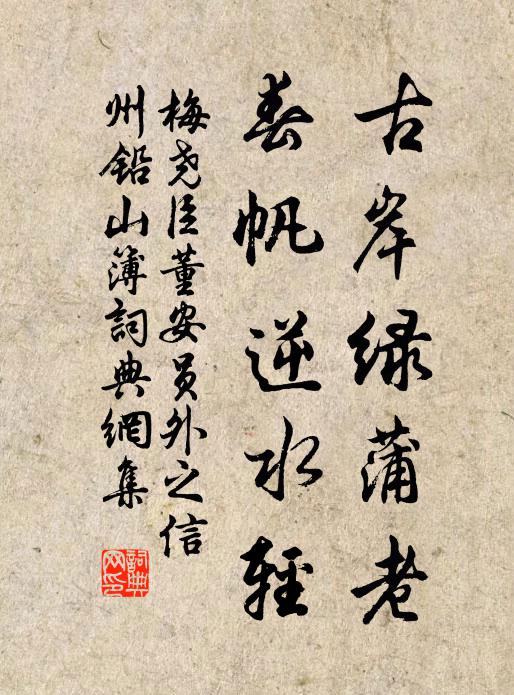 古岸绿蒲老
春帆逆水轻
梅尧臣董安员外之信
州铅山簿词典網集
詞典
网印